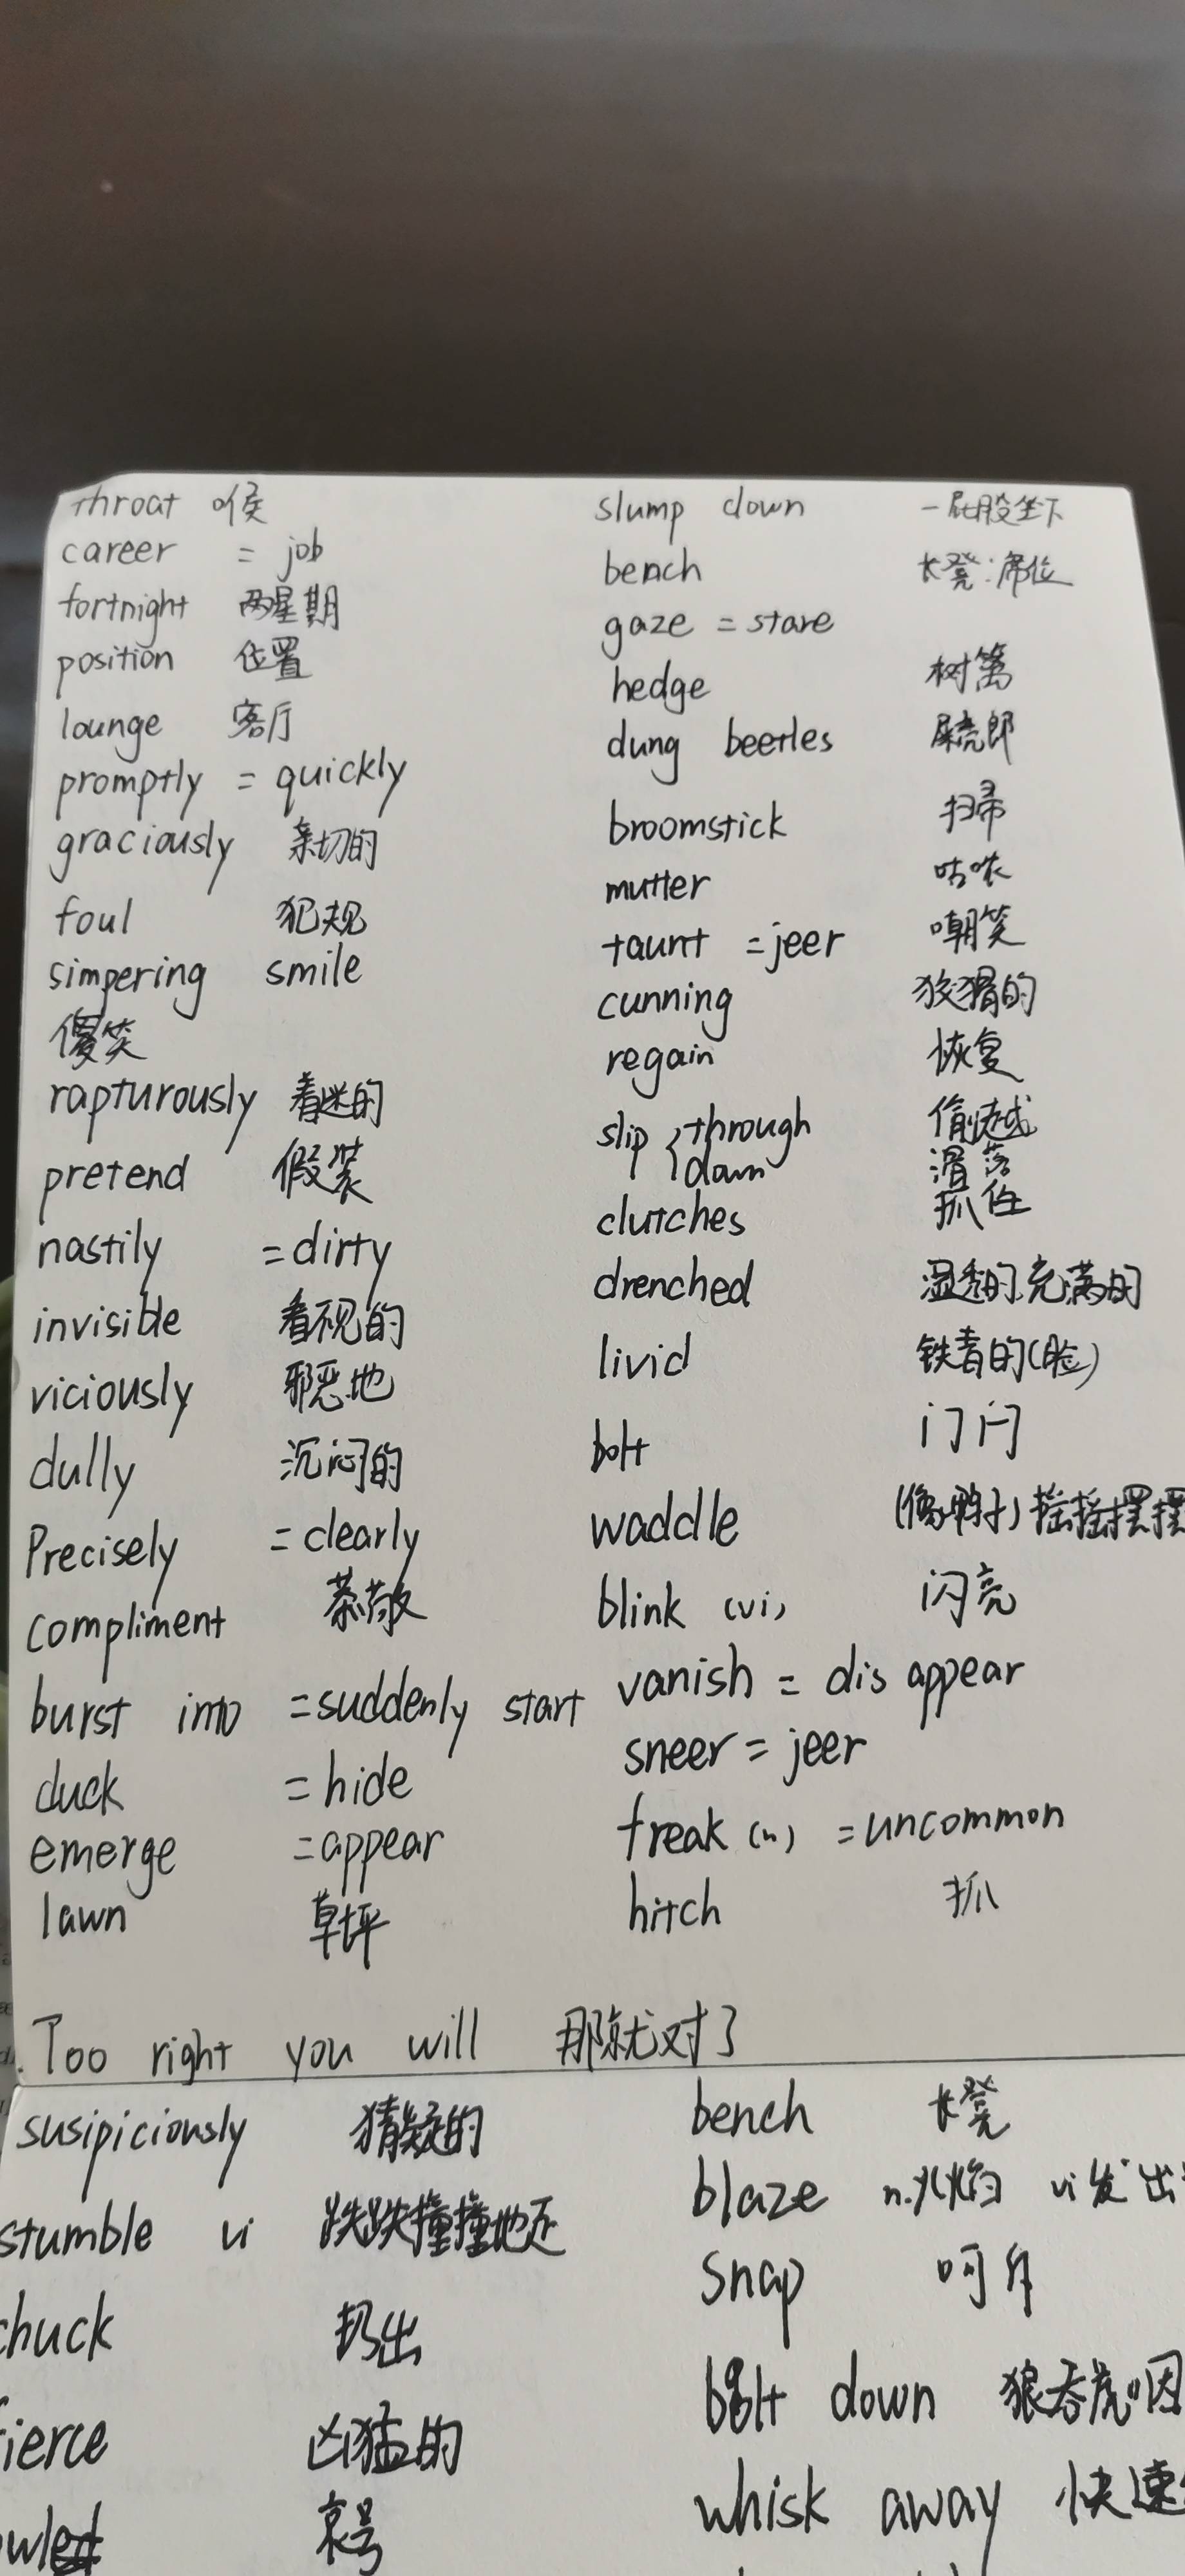 throat 喉
career = job
fortnight 两星期
position 位置
lounge 客厅
promptly = quickly
graciously 亲切的
foul 犯规
simpering smile
傻笑
rapturously 着迷的
pretend 假装
nastily = dirty
invisible 看视的
viciously 邪恶地
dully 沉闷的
Precisely = clearly
compliment 恭敬
burst into = suddenly start
duck = hide
emerge = appear
lawn 草坪
slump down 一屁股坐下
bench 长凳;席位
gaze = stare
hedge 树篱
dung beetles 屎壳郎
broomstick 扫帚
mutter 咕哝
taunt = jeer 嘲笑
cunning 狡猾的
regain 恢复
slip { through 偷越
down 滑落
clutches 抓住
drenched 湿透的,充满的
livid 铁青的(脸)
bolt 门闩
waddle (像鸭子)摇摇摆摆
blink (vi) 闪亮
vanish = dis appear
sneer = jeer
freak (n) = uncommon
hitch 抓
Too right you will 那就对了
susipiciously 猜疑的
stumble vi 跌跌撞撞地走
chuck 扔出
fierce 凶猛的
哀号
bench 长凳
blaze n.火焰 vi 发出
snap 呵斥
bolt down 狼吞虎咽
whisk away 快速